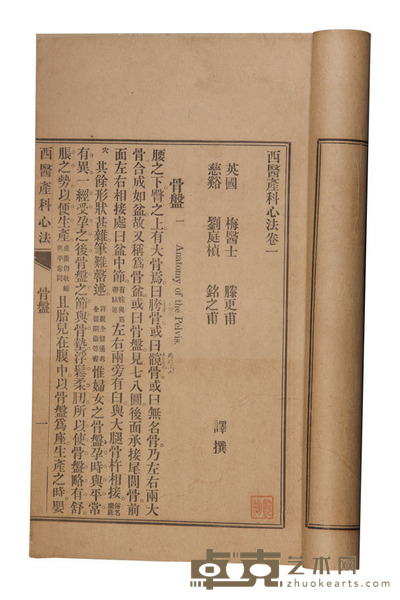 西醫產科心法卷一
英國 梅醫士 滕更甫
慈谿 劉庭楨 銘之甫
譯撰
骨盤 一 Anatomy of the Pelvis.
腰之下臀之上有大骨焉曰胯骨或曰髖骨或曰無名骨乃左右兩大
骨合成如盆故又稱為骨盆或曰骨盤見七八圖後面承接尾閭骨前
面左右相接處曰盆中節左右兩旁有臼與大腿骨杵相接
其餘形狀甚雜筆難罄述惟婦女之骨盤孕時與平常
有異一經受孕之後骨盤之節與骨墊浮鬆柔肕所以使骨盤略有舒
脹之勢以便生產且胎兒在腹中以骨盤為座生產之時嬰
西醫產科心法 骨盤 一
卓克艺术网
www.zhuokearts.com